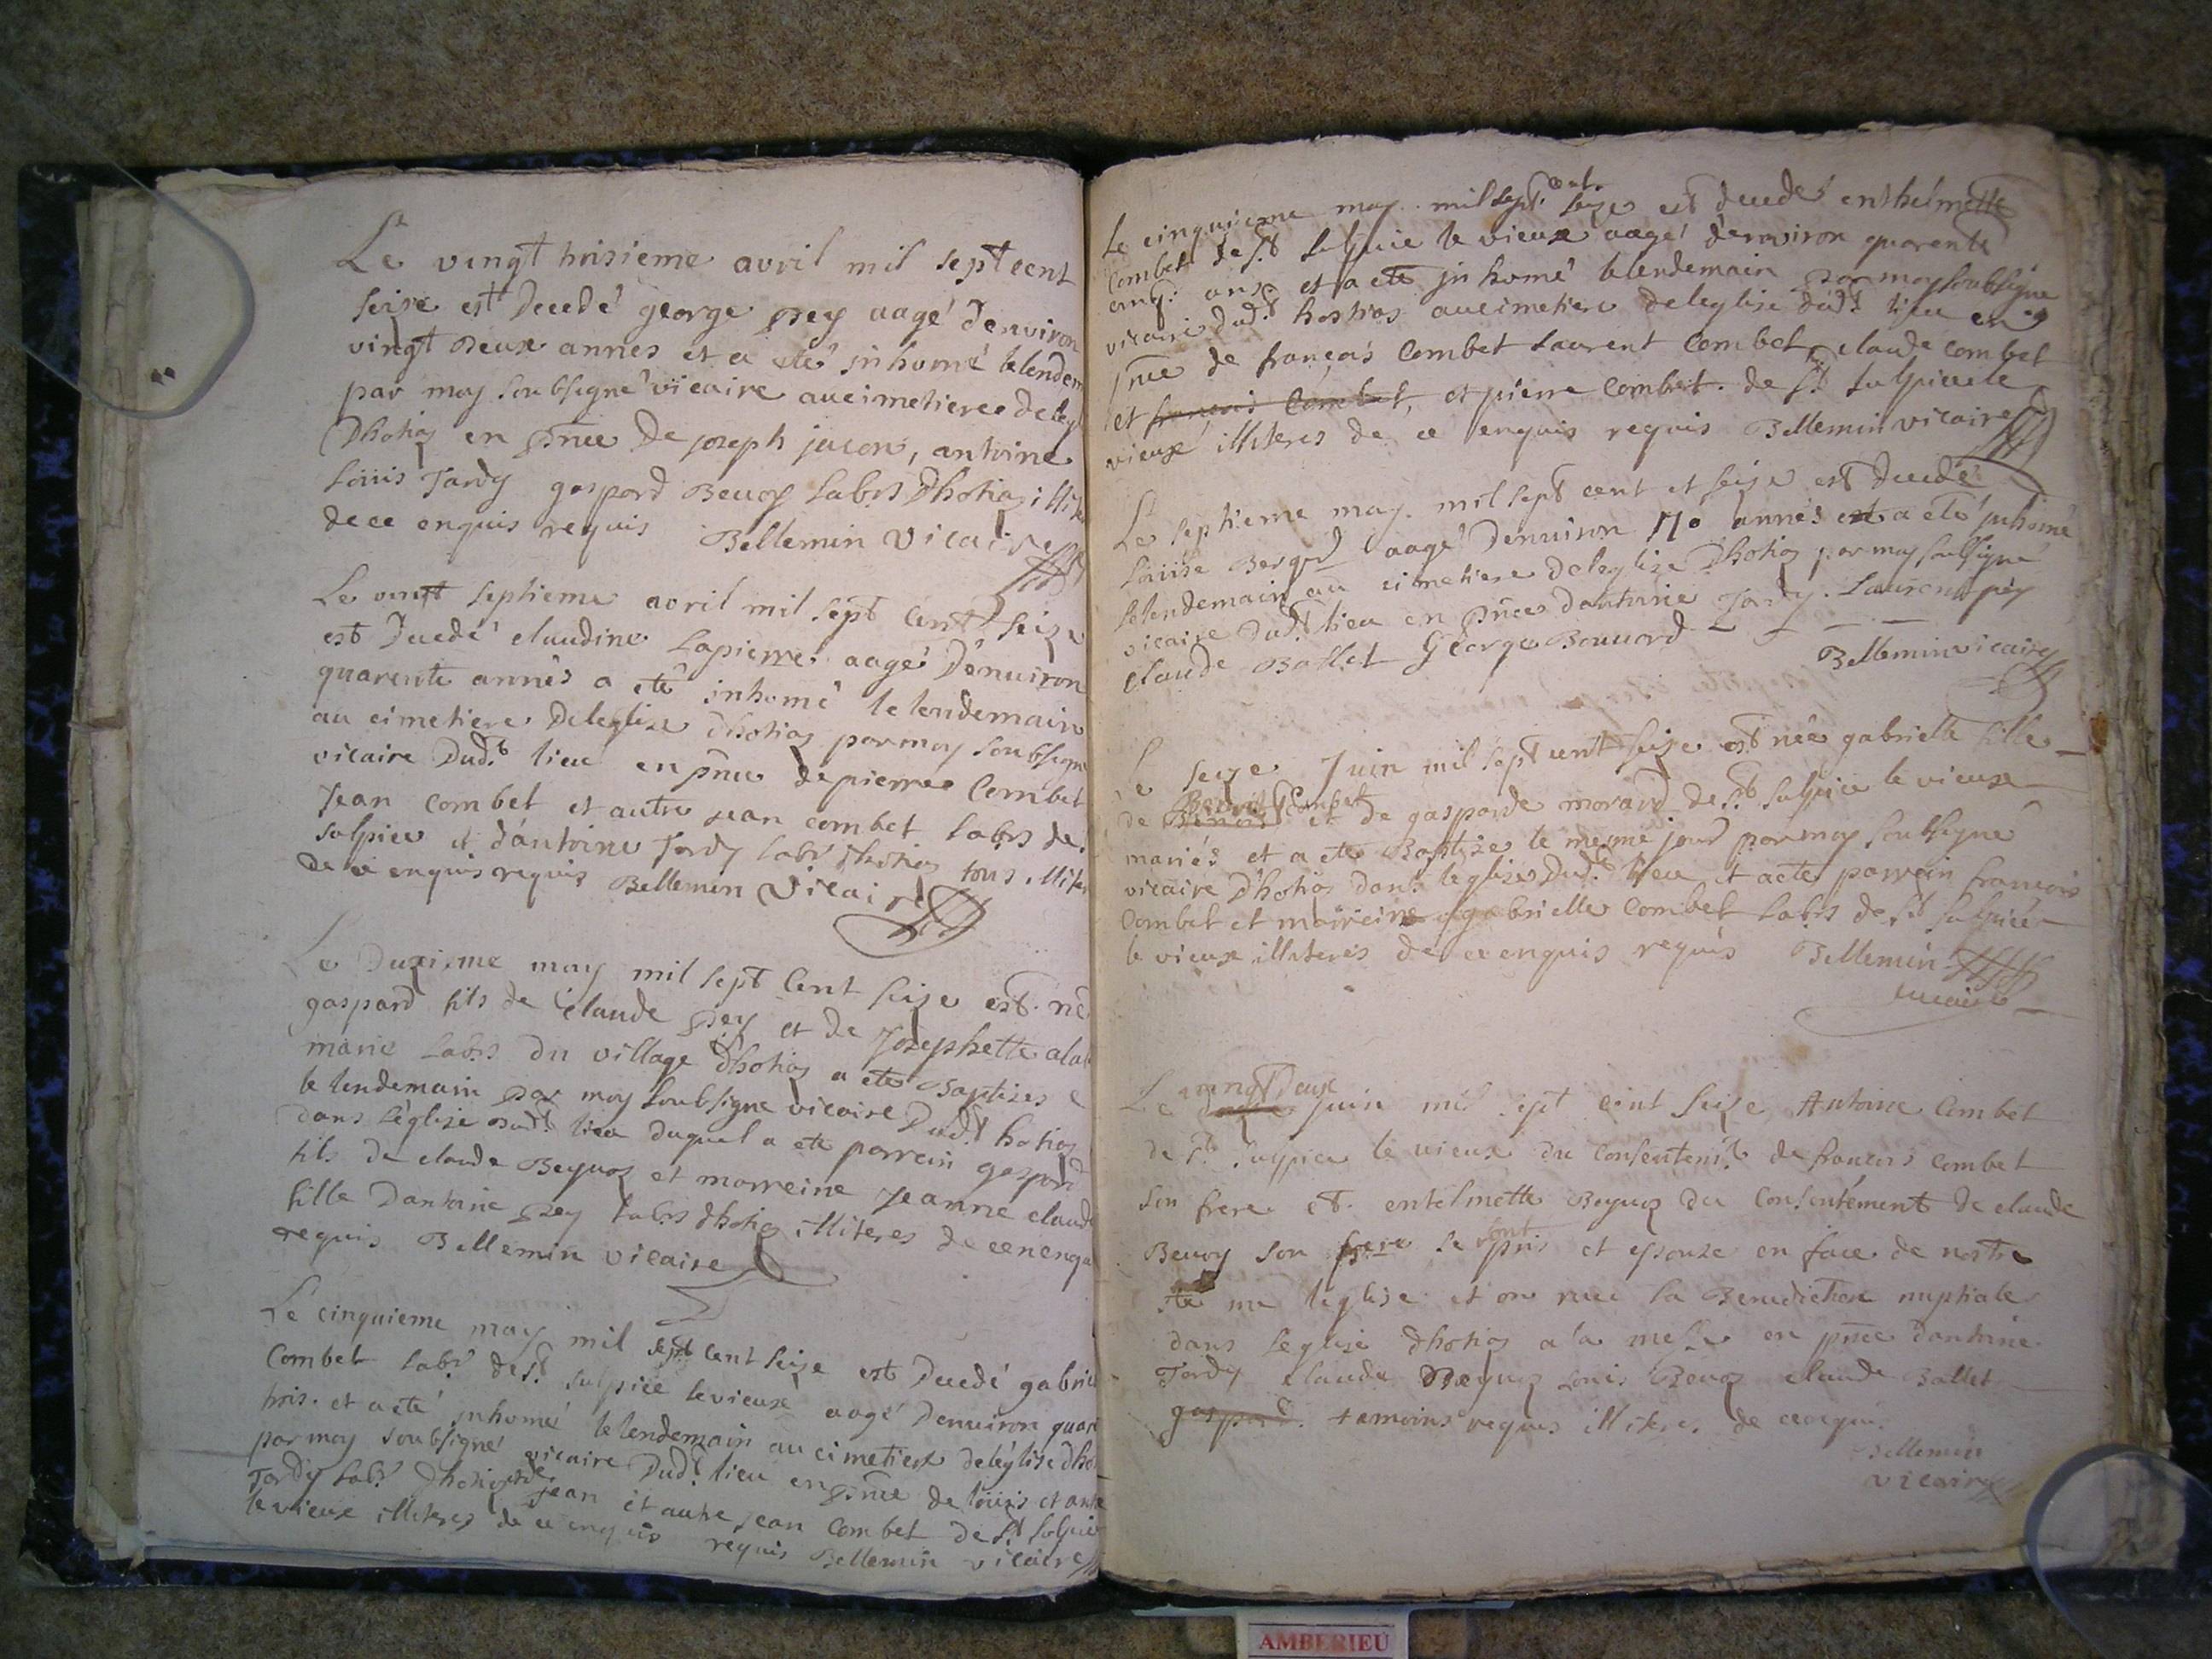 Le vingt troisieme avril mil sept cent
seize est decedé george pey aagé denviron
vingt deux annes et a eté jnhomé lelendem
par moy soubsigné vicaire au cimetiere deleg
Dhotias en pnce De joseph jucon, antoine
Loüis Tardy gaspard Beuoz Labrs Dhotias illite
dece enquis requis Bellemin Vicaire
Le vingt septieme avril mil sept Cent seize
est Decedé claudine Lapierre aagé Denuiron
quarente annés a eté inhomé le lendemain
au cimetiere Deleglise dhotias par moy soubsigne
vicaire Dudt lieu en pnce de pierre Combet
Jean Combet et autre jean combet Labrs de st
sulpice et dantoine Tardy Labr dhotias tous illiter
De ce enquis requis Bellemin Vicaire
Le Duxieme may mil sept Cent seize est né
gaspard fils de Claude pey et de Josephette alab
marié Labrs Du village Dhotias a ete Baptizes
le lendemain par moy soubsigne vicaire Dudt hotias
dans l'eglise Dudt lieu duquel a ete parrein gaspard
fils De claude Beyuoz et marreine Jeanne claude
fille Dantoine pey Labrs dhotias illiteres de ce enqui
requis Bellemin Vicaire
Le cinquieme may mil sept cent seize est Decedé gabriel
Combet Labr de st sulpice levieux aagé Denuiron quar
trois. et a eté jnhomé lelendemain au cimetiere deléglise dho
par moy soubsigné vicaire Dudt lieu en pnce de loüis et anto
Tardy Labr Dhotias et de jean et autre jean Combet De st sulpice
levieux illiteres de ce enquis requis Bellemin vicaire
Le cinquieme may mil sept cent seize est decedé enthelmette
Combet de st sulpice le vieux aagé denviron quarente
cinq ans et a ete jnhomé lelendemain par moy soubsigne
vicaire dudt hostias au cimetiere deleglise dudt lieu en
pnce de françois Combet Laurent Combet, claude combet
et françois Combet, et pierre Combet de st sulpice le
vieux illiteres de ce enquis requis Bellemin vicaire
Le septieme may mil sept cent et seize est Decedé
Loüise aagé Denuiron 70 annés et a eté jnhomé
lelendemain au cimetiere deleglise Dhotias par moy soubsigné
vicaire Dudt lieu en pnce dantoine Tardy Laurent pey
claude Ballet George Bouuard
Bellemin vicaire
Le seize Juin mil sept cent seize est née gabrielle fille
de Benoit Combet et de gasparde morard de st sulpice le vieux
mariés et a ete Baptize le meme jour par moy soubsigné
vicaire D'hotias dans leglise Dudt lieu et a ete parrein francois
Combet et marreine gabrielle Combet Labrs de st sulpice
le vieux illiteres de ce enquis requis Bellemin
vicaire
Le vingt Deux juin mil sept cent seize Antoine Combet
de st sulpice le vieux Du Consentemt de francois Combet
son frere et entelmette Beyuoz du Consentément de claude
Beuoz son frere se sont pris et epouze en face de nostre
ste me leglise et on receu la Benediction nuptiale
dans leglise dhotias a la messe en pnce dantoine
Tardy claude Beyuoz Louis Beuoz claude Ballet
gaspard. temoins requis illiteres de ce enquis.
Bellemin
vicaire
AMBERIEU